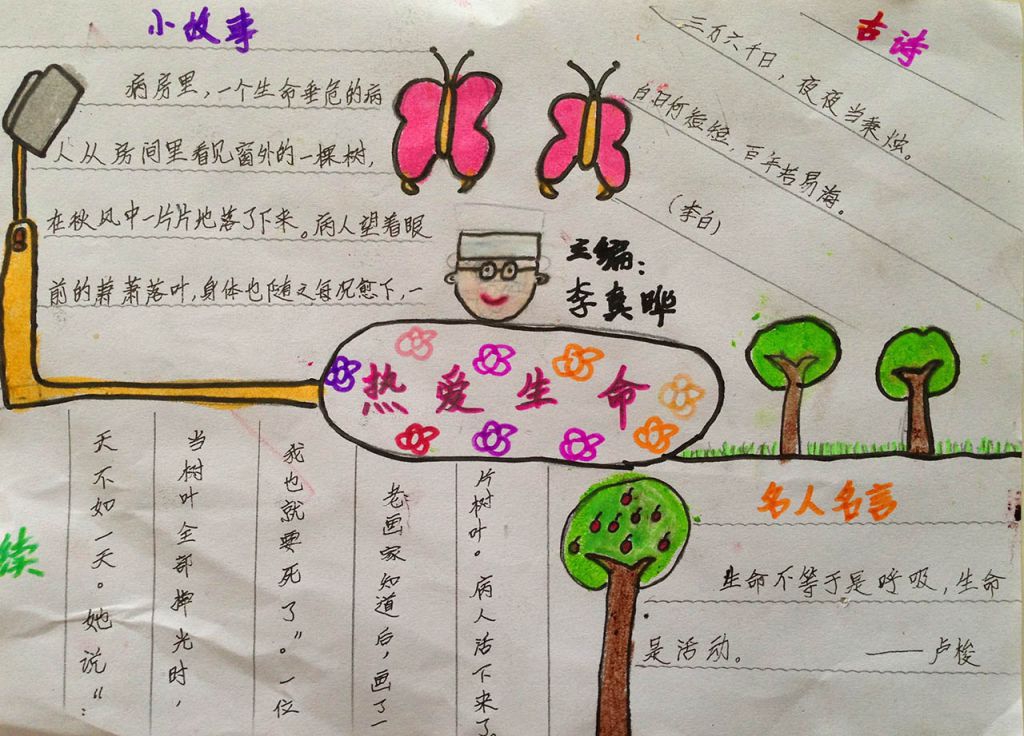 小故事
病房里，一个生命垂危的病
人从房间里看见窗外的一棵树，
在秋风中一片片地落了下来。病人望着眼
前的萧萧落叶，身体也随之每况愈下，一
续
天不如一天。她说“：
当树叶全部掉光时，
我也就要死了”。一位
老画家知道后，画了一
片树叶。病人活下来了。
热爱生命
主编：
李真晔
古诗
三万六千日，夜夜当秉烛。
白日何短短，百年苦易海。
（李白）
名人名言
生命不等于是呼吸，生命
是活动。——卢梭